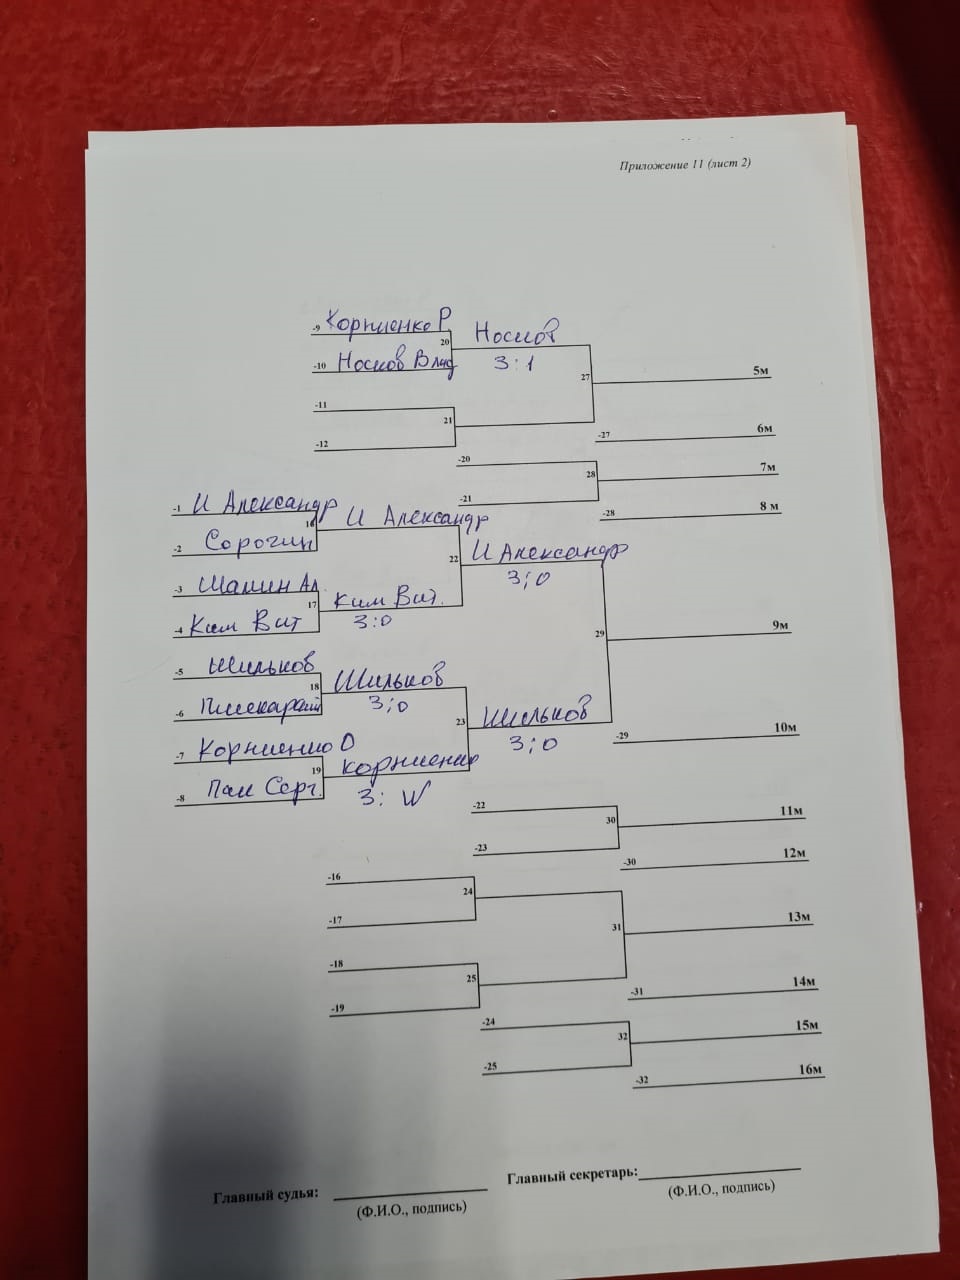 Приложение 11 (лист 2)
-9 Корниенко Р.
20 Носков
-10 Носков Влад
3:1
27
5м
-11
21
-12
-27 6м
-20
28
7м
-21
-28 8 м
-1 И Александр
16 И Александр
-2 Сорочин
22 И Александр
3:0
-3 Шамин Ал
17 Ким Вит.
-4 Ким Вит
3:0
29
9м
-5 Шильков
18 Шильков
-6
3:0
23 Шильков
3:0
-29 10м
-7 Корниенко О
19 Корниенко
-8 Пак Серг.
3: W
-22
30
11м
-23
-30 12м
-16
24
-17
31
13м
-18
25
-19
-31 14м
-24
32
15м
-25
-32 16м
Главный судья:
(Ф.И.О., подпись)
Главный секретарь:
(Ф.И.О., подпись)